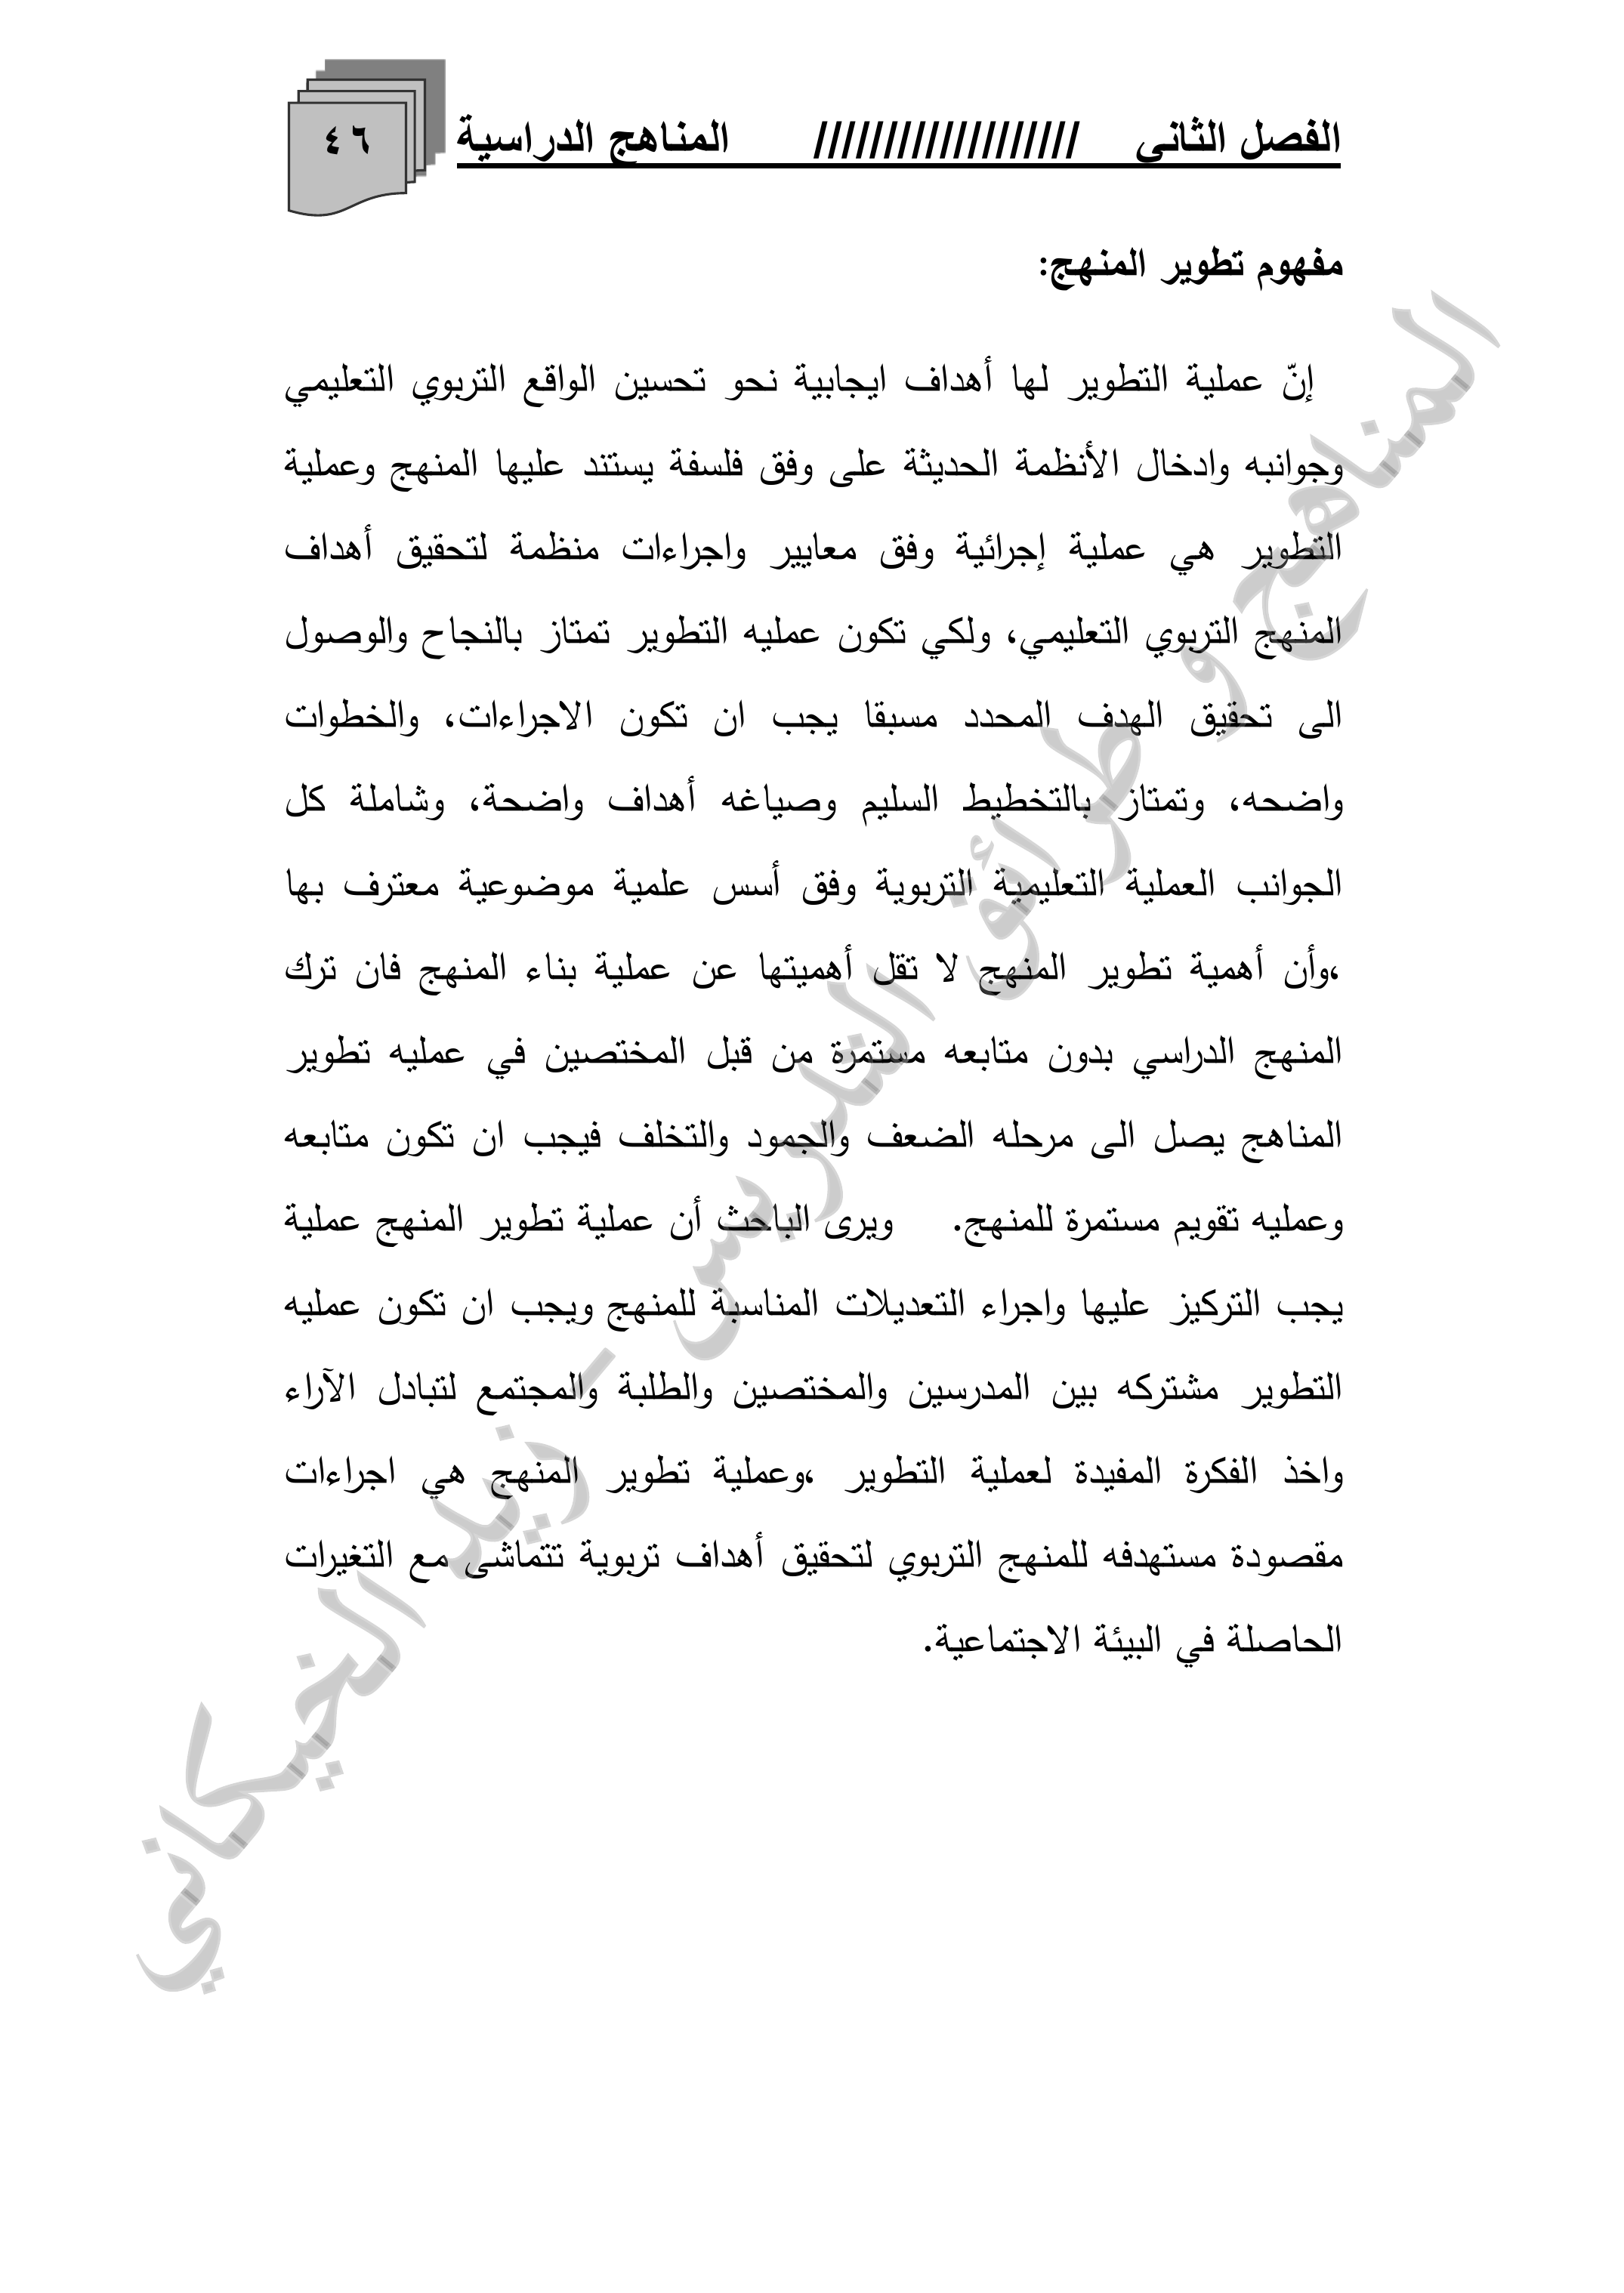 الفصل الثاني /////////////////// المناهج الدراسية ٤٦
مفهوم تطوير المنهج:
إنّ عملية التطوير لها أهداف ايجابية نحو تحسين الواقع التربوي التعليمي
وجوانبه وادخال الأنظمة الحديثة على وفق فلسفة يستند عليها المنهج وعملية
التطوير هي عملية إجرائية وفق معايير واجراءات منظمة لتحقيق أهداف
المنهج التربوي التعليمي، ولكي تكون عمليه التطوير تمتاز بالنجاح والوصول
الى تحقيق الهدف المحدد مسبقا يجب ان تكون الاجراءات، والخطوات
واضحه، وتمتاز بالتخطيط السليم وصياغه أهداف واضحة، وشاملة كل
الجوانب العملية التعليمية التربوية وفق أسس علمية موضوعية معترف بها
،وأن أهمية تطوير المنهج لا تقل أهميتها عن عملية بناء المنهج فان ترك
المنهج الدراسي بدون متابعه مستمرة من قبل المختصين في عمليه تطوير
المناهج يصل الى مرحله الضعف والجمود والتخلف فيجب ان تكون متابعه
وعمليه تقويم مستمرة للمنهج. ويرى الباحث أن عملية تطوير المنهج عملية
يجب التركيز عليها واجراء التعديلات المناسبة للمنهج ويجب ان تكون عمليه
التطوير مشتركه بين المدرسين والمختصين والطلبة والمجتمع لتبادل الآراء
واخذ الفكرة المفيدة لعملية التطوير ،وعملية تطوير المنهج هي اجراءات
مقصودة مستهدفه للمنهج التربوي لتحقيق أهداف تربوية تتماشى مع التغيرات
الحاصلة في البيئة الاجتماعية.
المناهج و طرائق التدريس - زيد الخيكاني